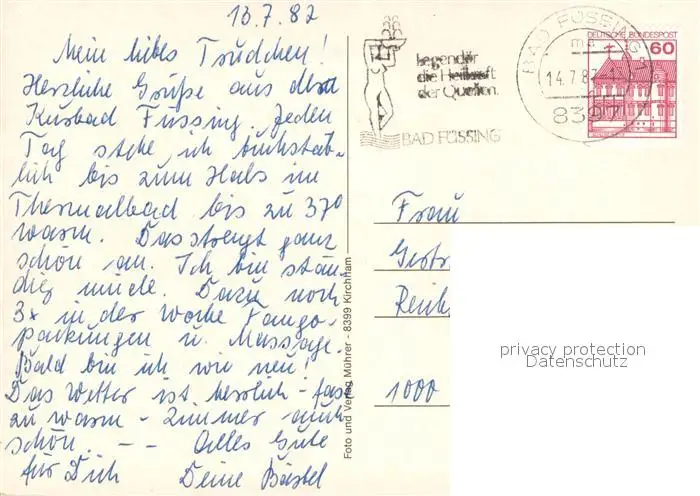 13.7.82
Mein liebes Trudchen!
Herzliche Grüße aus dem
Kurbad Füssing. Jeden
Tag stehe ich buchstäb-
lich bis zum Hals im
Thermalbad bis zu 37°
warm. Das strengt ganz
schön an. Ich bin stän-
dig müde. Dazu noch
3x in der Woche Fango-
packungen u. Massage.
Bald bin ich wie neu!
Das Wetter ist herrlich - fast
zu warm - Zimmer auch
schön. - - Alles Gute
für Dich Deine Bärbel
Foto und Verlag Mührer - 8399 Kirchham
Legendär
die Heilkraft
der Quellen.
BAD FÜSSING
BAD FÜSSING
14.7.8
8397
DEUTSCHE BUNDESPOST
60
Frau
Gertr
1000
privacy protection
Datenschutz